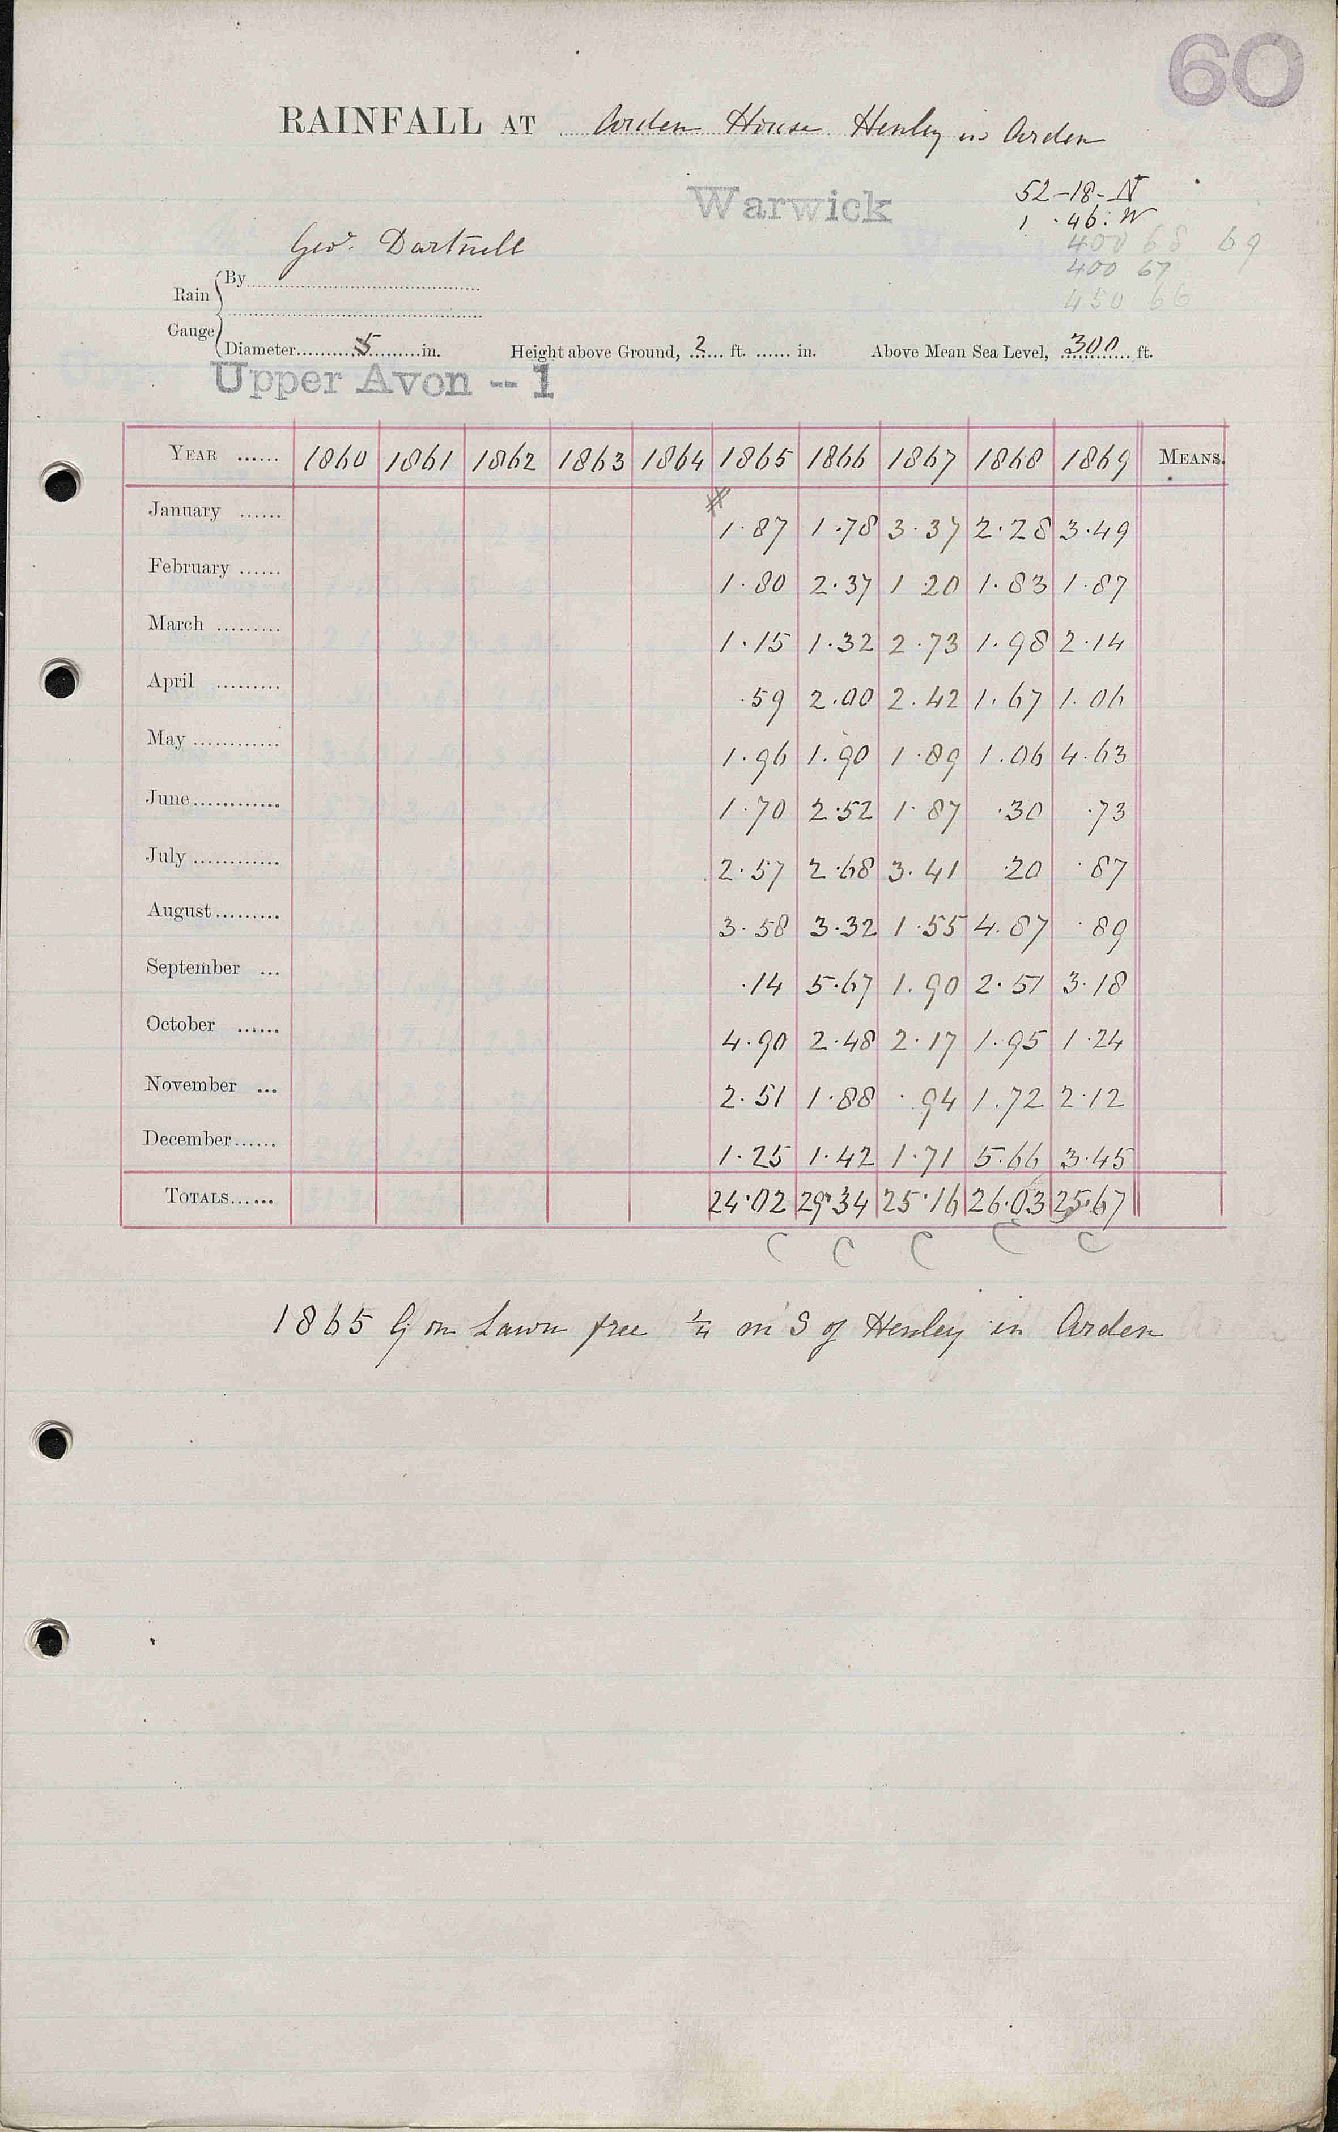 60
RAINFALL AT Arden House Henley in Arden
Warwick
52-18-N
1·46·W
400 68 69
400 67
450 66
Geo. Dartnell
Rain Gauge
By
Diameter 5 in. Height above Ground, 2 ft. in. Above Mean Sea Level, 300 ft.
Upper Avon -- 1
YEAR 1860 1861 1862 1863 1864 1865 1866 1867 1868 1869 MEANS.
January 1·87 1·78 3·37 2·28 3·49
February 1·80 2·37 1·20 1·83 1·87
March 1·15 1·32 2·73 1·98 2·14
April ·59 2·00 2·42 1·67 1·06
May 1·96 1·90 1·89 1·06 4·63
June 1·70 2·52 1·87 ·30 ·73
July 2·57 2·68 3·41 ·20 ·87
August 3·58 3·32 1·55 4·87 ·89
September ·14 5·67 1·90 2·51 3·18
October 4·90 2·48 2·17 1·95 1·24
November 2·51 1·88 ·94 1·72 2·12
December 1·25 1·42 1·71 5·66 3·45
TOTALS 24·02 29·34 25·16 26·03 25·67
C C C C C
1865 G on Lawn free ¼ m S of Henley in Arden